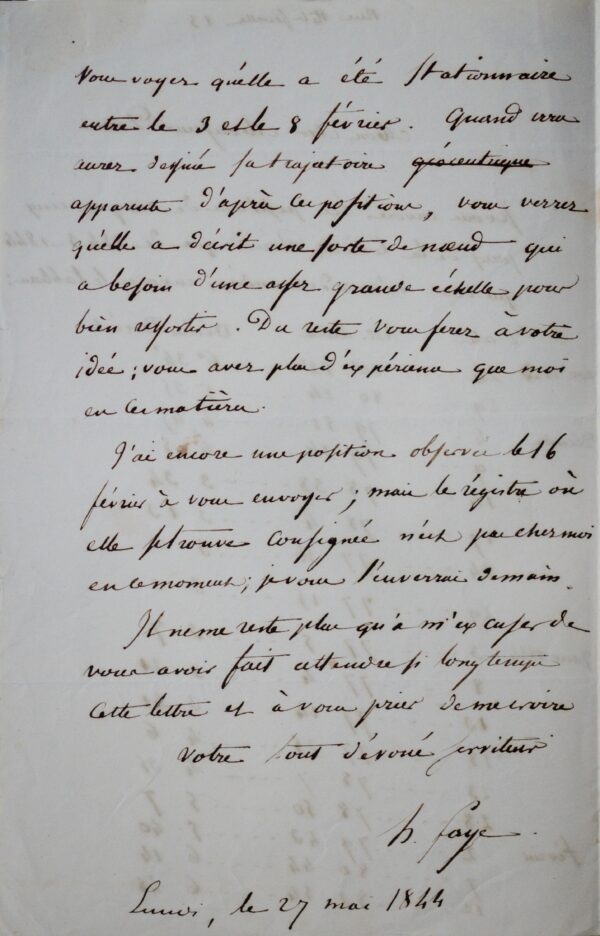 Vous voyez qu'elle a été stationnaire
entre le 3 et le 8 février. Quand vous
aurez dessiné sa trajectoire géocentrique
apparente d'après ces positions, vous verrez
qu'elle a décrit une sorte de nœud qui
a besoin d'une assez grande échelle pour
bien ressortir. Du reste vous ferez à votre
idée; vous avez plus d'expérience que moi
en ces matières.
J'ai encore une position observée le 16
février à vous envoyer; mais le régistre où
elle se trouve consignée n'est pas chez moi
en ce moment; je vous l'enverrai demain.
Il ne me reste plus qu'à m'excuser de
vous avoir fait attendre si longtemps
cette lettre et à vous prier de me croire
votre tout dévoué serviteur
h. faye
Lundi, le 27 mai 1844